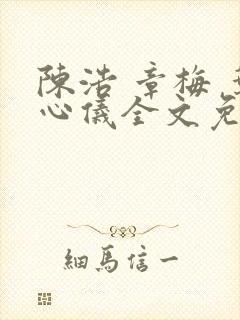 陳浩 章梅
心儀全文免
細馬信一